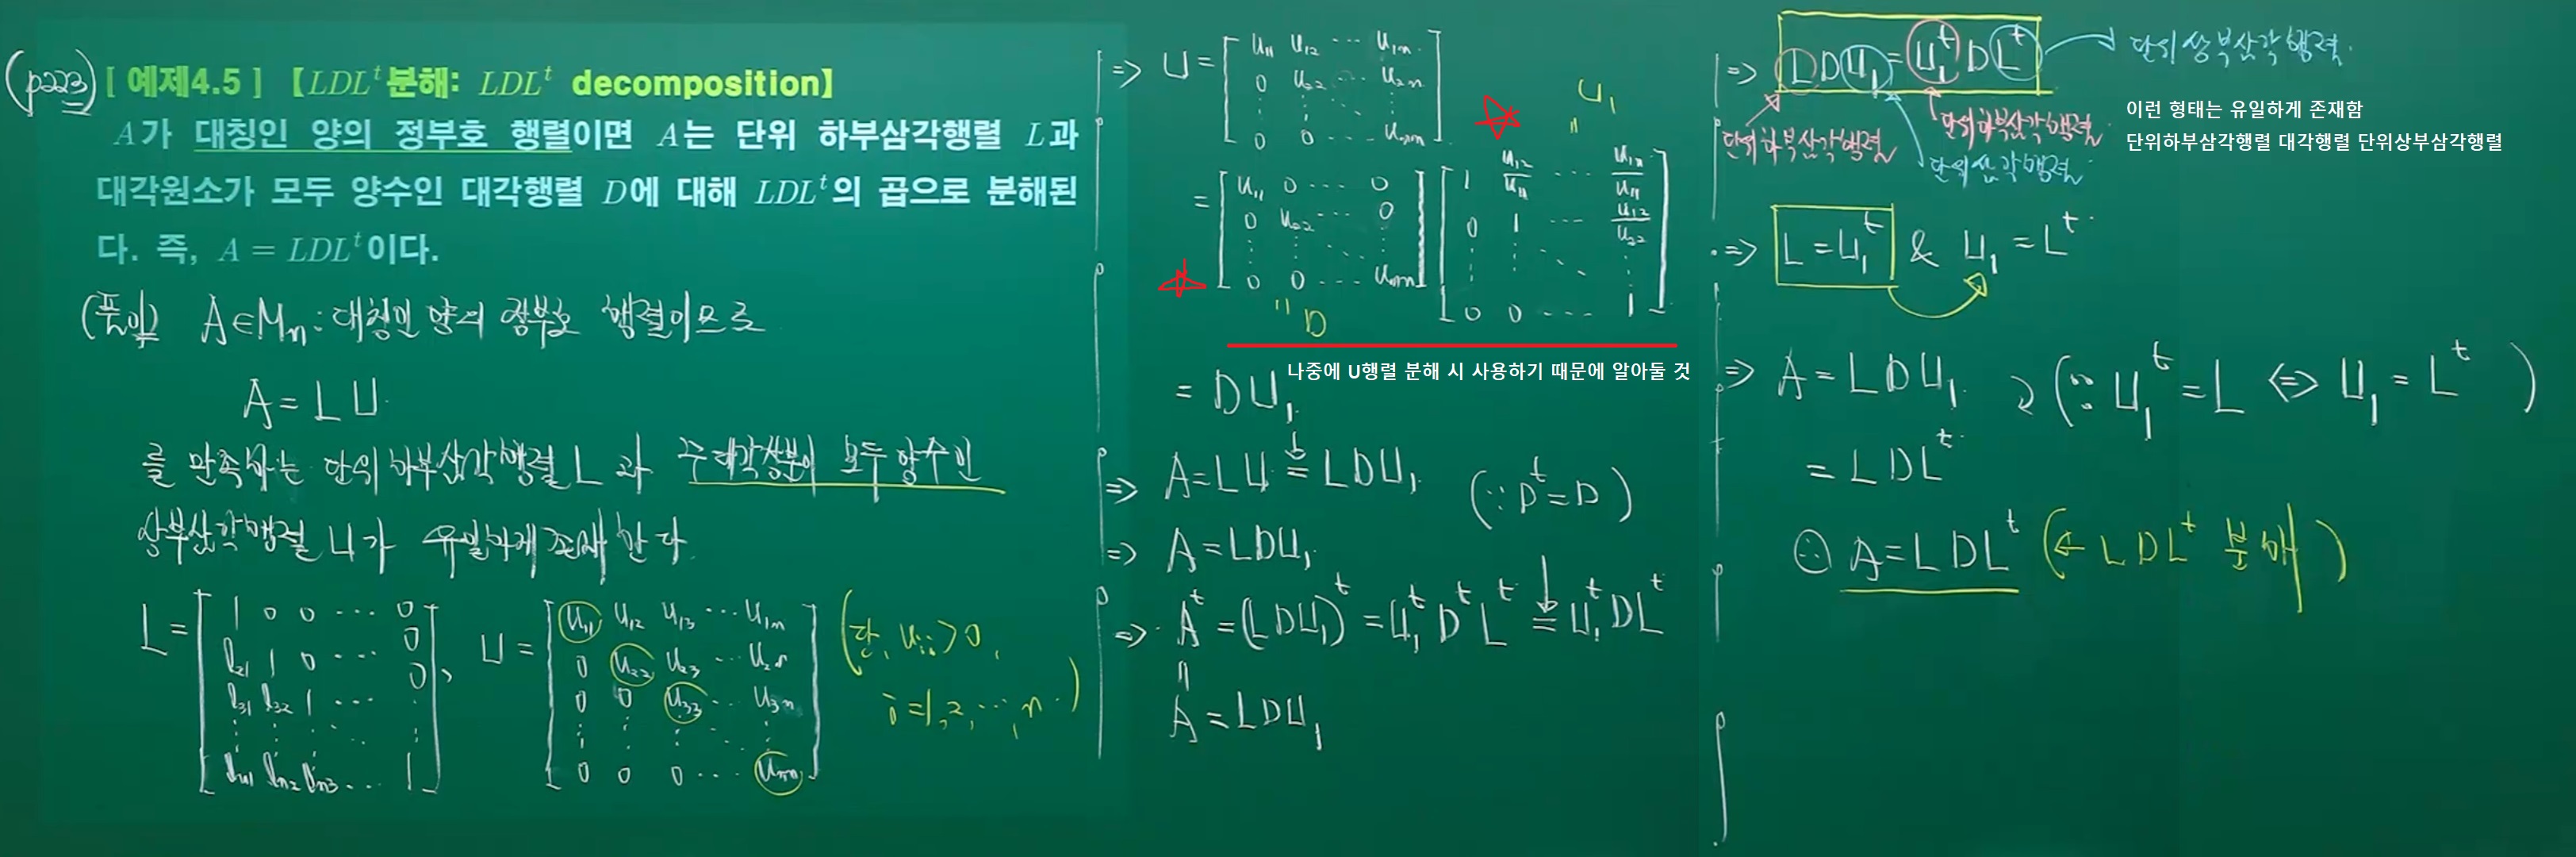 (p223) [ 예제4.5 ] 【LDLᵗ분해: LDLᵗ decomposition】
A가 대칭인 양의 정부호 행렬이면 A는 단위 하부삼각행렬 L과
대각원소가 모두 양수인 대각행렬 D에 대해 LDLᵗ의 곱으로 분해된
다. 즉, A = LDLᵗ이다.
(풀이) A∈Mn : 대칭인 양의 정부호 행렬이므로
A = LU
를 만족하는 단위하부삼각행렬 L과 주대각성분이 모두 양수인
상부삼각행렬 U가 유일하게 존재한다
L = [ 1 0 0 ⋯ 0
l21 1 0 ⋯ 0
l31 l32 1 ⋯ 0
⋮ ⋮ ⋮ ⋱ ⋮
ln1 ln2 ln3 ⋯ 1 ],
U = [ u11 u12 u13 ⋯ u1n
0 u22 u23 ⋯ u2n
0 0 u33 ⋯ u3n
⋮ ⋮ ⋮ ⋱ ⋮
0 0 0 ⋯ unn ]
(단, uii > 0,
i=1, 2, ⋯, n)
=> U = [ u11 u12 ⋯ u1n
0 u22 ⋯ u2n
⋮ ⋮ ⋱ ⋮
0 0 ⋯ unn ]
U1
"
= [ u11 0 ⋯ 0
0 u22 ⋯ 0
⋮ ⋮ ⋱ ⋮
0 0 ⋯ unn ]
[ 1 u12/u11 ⋯ u1n/u11
0 1 ⋯ u12/u22
⋮ ⋮ ⋱ ⋮
0 0 ⋯ 1 ]
" D
나중에 U행렬 분해 시 사용하기 때문에 알아둘 것
= DU1
=> A = LU = LDU1 (∵ Dᵗ = D)
=> A = LDU1
=> Aᵗ = (LDU1)ᵗ = U1ᵗ Dᵗ Lᵗ = U1ᵗ DLᵗ
"
A = LDU1
=> LDU1 = U1ᵗ D Lᵗ 단위상부삼각행렬
단위하부삼각행렬 단위하부삼각행렬
단위삼각행렬
이런 형태는 유일하게 존재함
단위하부삼각행렬 대각행렬 단위상부삼각행렬
=> L = U1ᵗ & U1 = Lᵗ
=> A = LDU1 (∵ U1ᵗ = L <=> U1 = Lᵗ)
= LDLᵗ
∴ A = LDLᵗ (← LDLᵗ 분해)